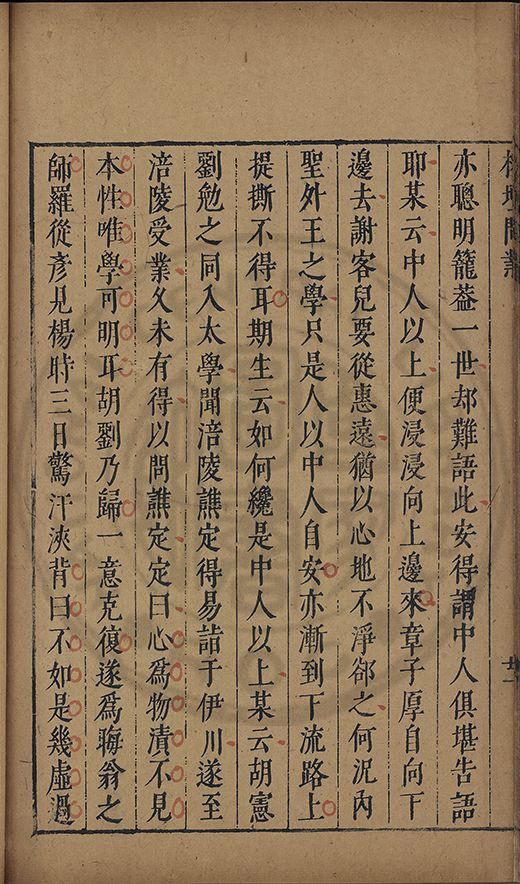 亦聰明籠葢一世却難語此安得謂中人俱堪告語
耶某云中人以上便浸浸向上邊來章子厚自向下
邊去謝客兒要從惠遠猶以心地不淨郤之何況內
聖外王之學只是人以中人自安亦漸到下流路上
提撕不得耳期生云如何纔是中人以上某云胡憲
劉勉之同入太學聞涪陵譙定得易詰于伊川遂至
涪陵受業久未有得以問譙定定曰心爲物漬不見
本性唯學可明耳胡劉乃歸一意克復遂爲晦翁之
師羅從彥見楊時三日驚汗浹背曰不如是幾虛過